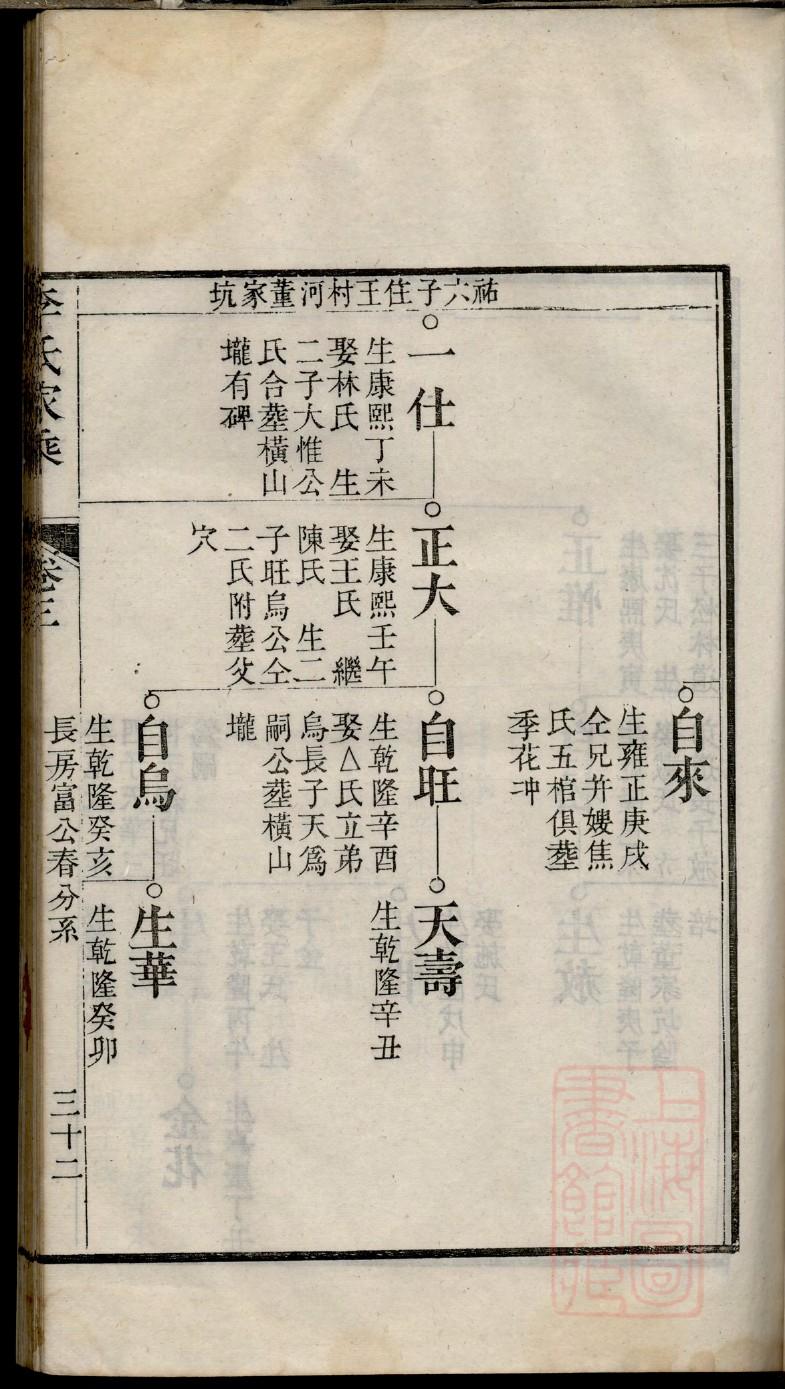 祐六子住王村河董家坑
自來
生雍正庚戌
仝兄并嫂焦
氏五棺俱塟
季花冲
一仕
生康熙丁未
娶林氏 生
二子大惟公
氏合塟橫山
壠有碑
正大
生康熙壬午
娶王氏 繼
陳氏 生二
子旺烏公仝
二氏附塟父
穴
自旺
生乾隆辛酉
娶△氏立弟
烏長子天爲
嗣公塟橫山
壠
天壽
生乾隆辛丑
自烏
生乾隆癸亥
生華
生乾隆癸卯
李氏家乘
卷三
長房富公春分系
三十二
上海圖書館藏